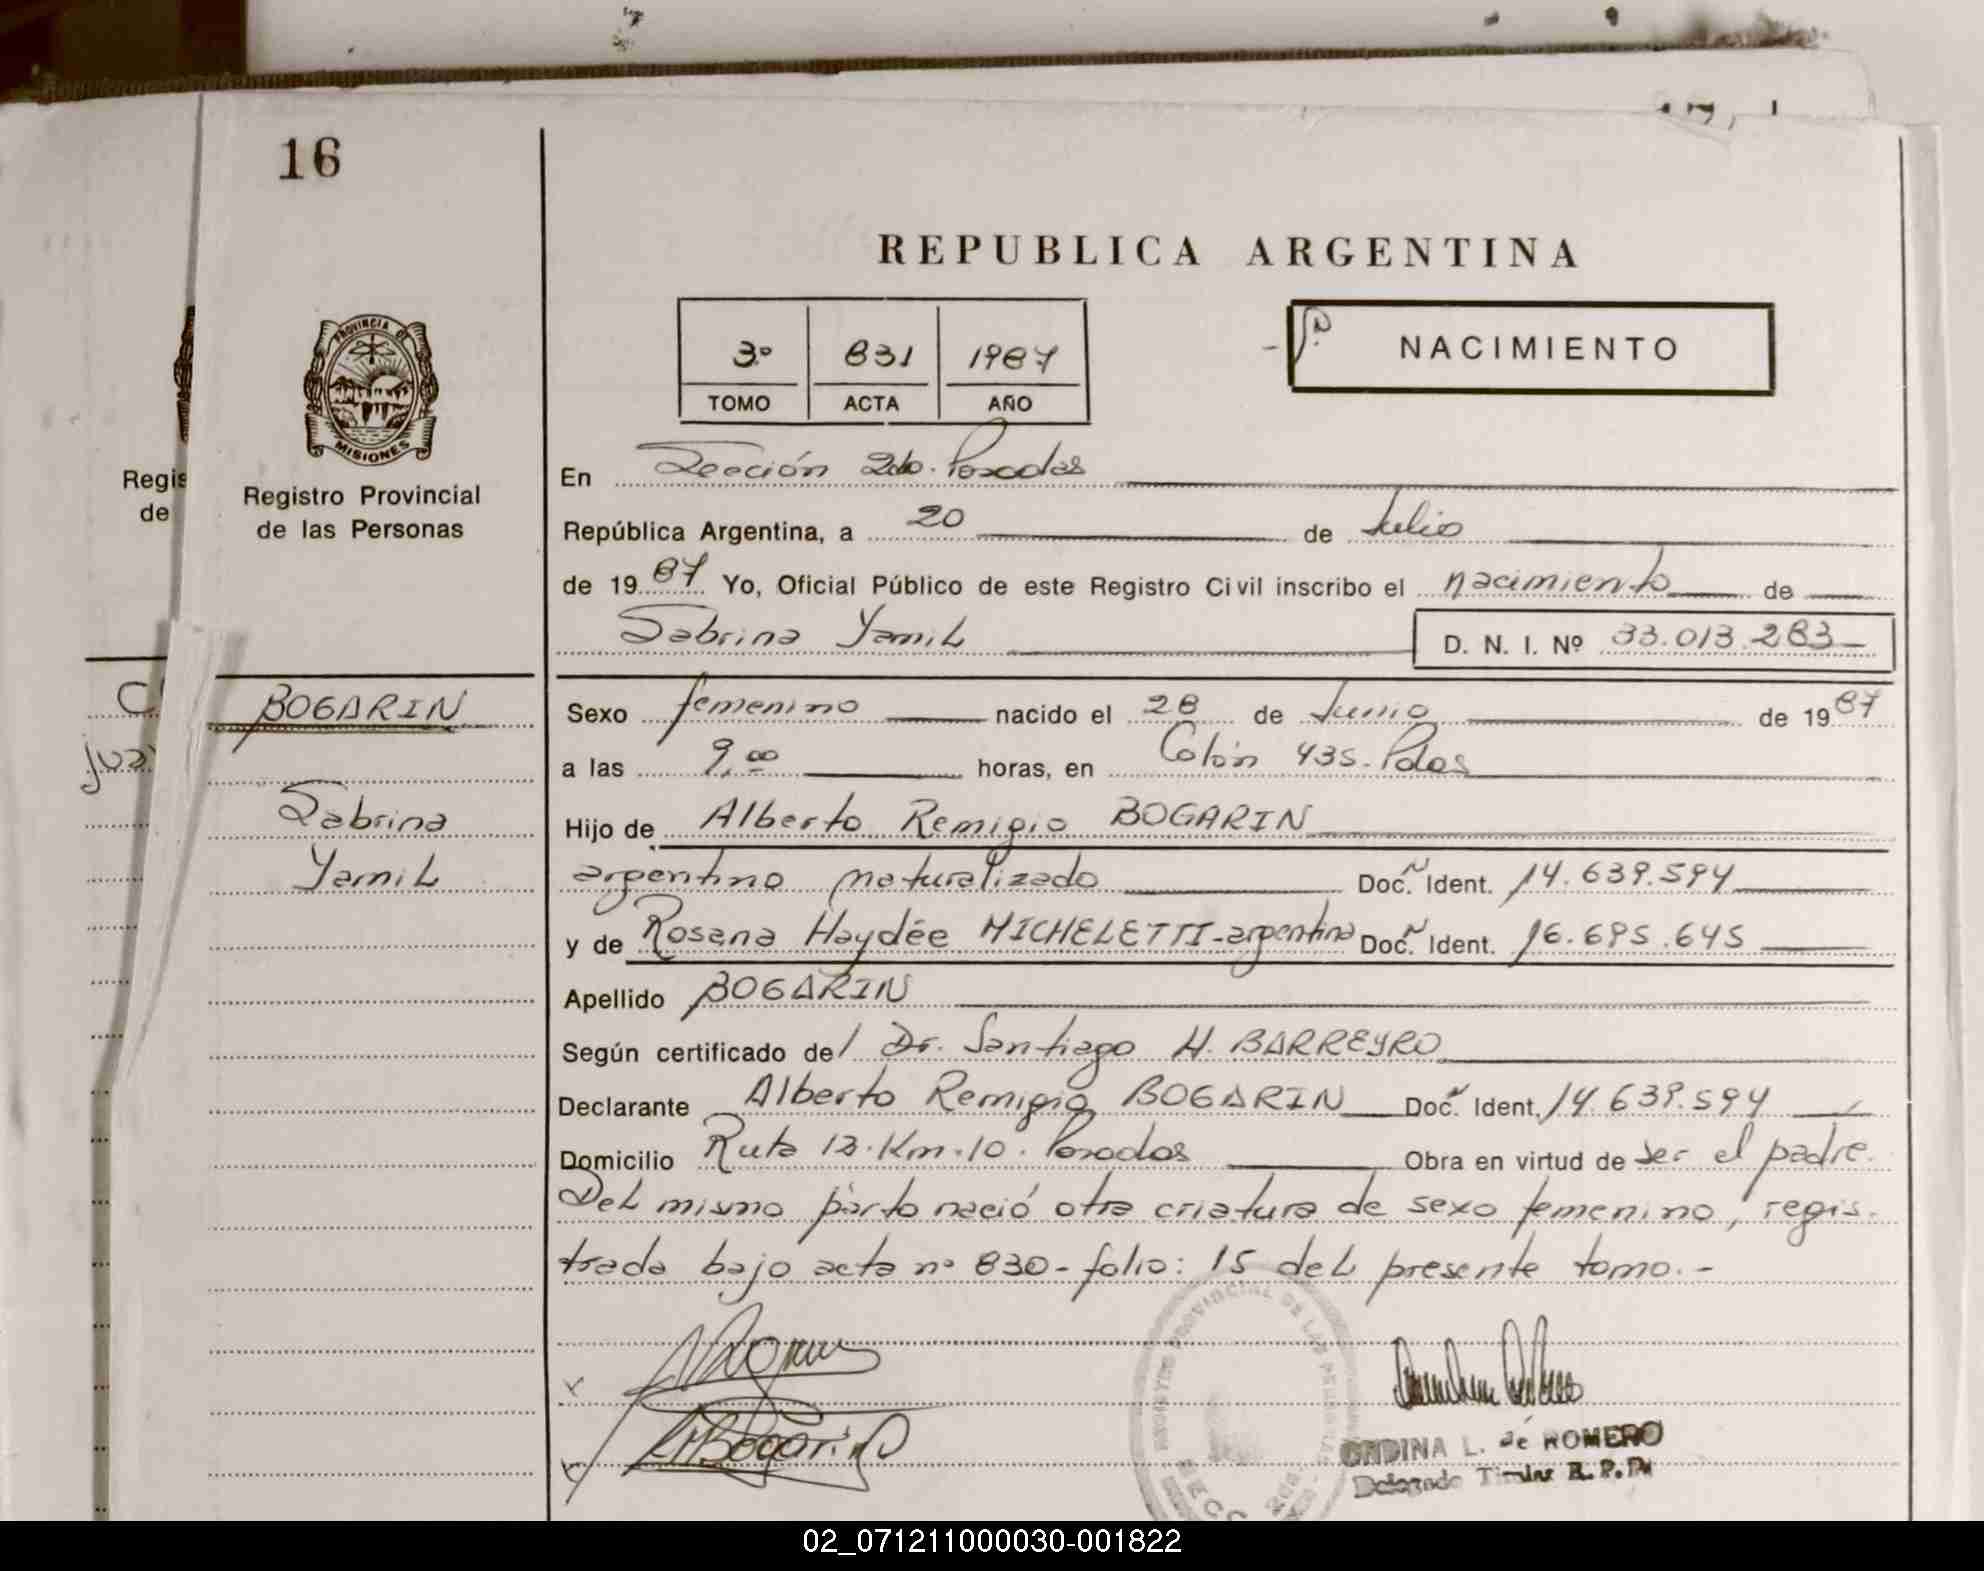 16
REPUBLICA ARGENTINA
PROVINCIA DE
MISIONES
Registro Provincial
de las Personas
Regis
de
3º 831 1987
TOMO ACTA AÑO
NACIMIENTO
En Sección 2da. Posadas
República Argentina, a 20 de Julio
de 1987 Yo, Oficial Público de este Registro Civil inscribo el nacimiento de
Sabrina Yamil D. N. I. Nº 33.013.283
BOGARIN
Sabrina
Yamil
Sexo femenino nacido el 28 de Junio de 1987
a las 9,00 horas, en Colón 435. Pdas
Hijo de Alberto Remigio BOGARIN
argentino naturalizado Doc. Ident. 14.639.594
y de Rosana Haydée MICHELETTI-argentina Doc. Ident. 16.695.645
Apellido BOGARIN
Según certificado del Dr. Santiago H. BARREYRO
Declarante Alberto Remigio BOGARIN Doc. Ident. 14.639.594
Domicilio Ruta 12.Km.10. Posadas Obra en virtud de ser el padre.
Del mismo parto nació otra criatura de sexo femenino, regis-
trada bajo acta nº 830-folio: 15 del presente tomo.-
ONDINA L. de ROMERO
Delegado Titular R.P.P.
02_071211000030-001822